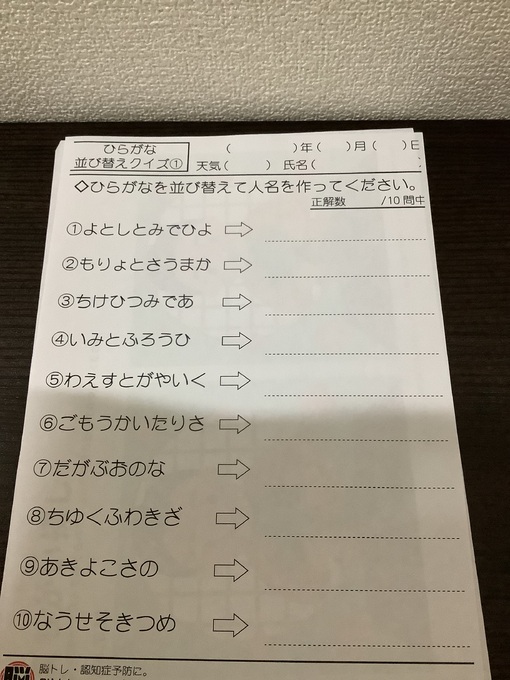 ひらがな
並び替えクイズ①
(　　　)年(　)月(　)日
天気(　　)　氏名(
◇ひらがなを並び替えて人名を作ってください。
正解数　　/10問中
①よとしとみでひよ
②もりょとさうまか
③ちけひつみであ
④いみとふろうひ
⑤わえすとがやいく
⑥ごもうかいたりさ
⑦だがぶおのな
⑧ちゆくふわきざ
⑨あきよこさの
⑩なうせそきつめ
脳トレ・認知症予防に。